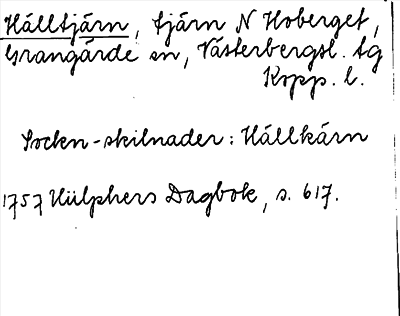 Hälltjärn, tjärn N Hoberget,
Grangärde sn, Västerbergsl. tg
Kopp. l.
Socken-skilnader: Hällkärn
1757 Hülphers Dagbok, s. 617.